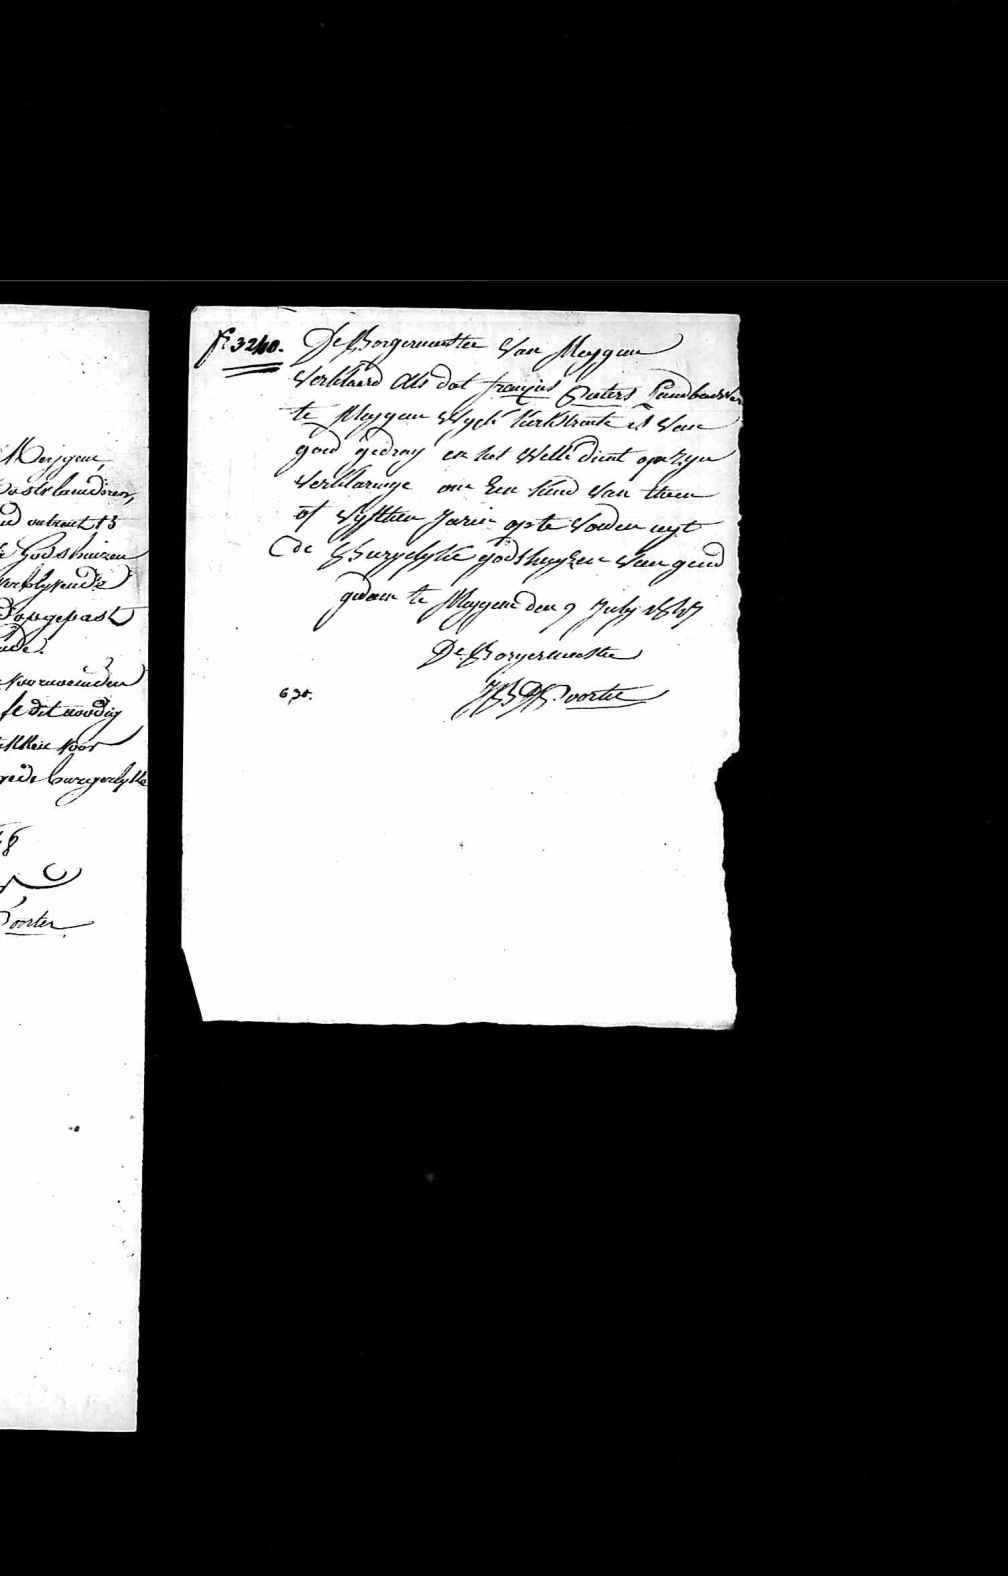 Meygem,
outrent 13
Godshuizen
opgepast
voorwienden
dit noodig
voor
burgerlyke
48
Poorter
f. 3240. De Borgermeester van Meygem
Verklaerd Als dat françies Pieters Landbouwer
te Meygem Wyck Kerkstraete is van
goed gedrag en het welk dient op zyn
verklaringe om Een kind van thien
of vyfthien Jaeren op te voeden uyt
de Burgelyke godshuyzen van gend
gedaen te Meygem den 9 July 1847
De Borgermeester
630. JB D Poorter